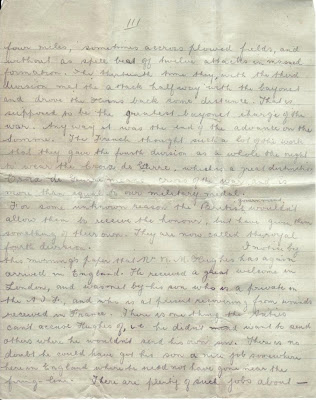 111
four miles, sometimes accross plowed fields, and
without a spell beat off twelve attacks in massed
formation. The thirteenth time they, with the third
division met the attack halfway with the bayonet
and drove the Huns back some distance. That is
supposed to be the greatest bayonet charge of the
war. Any way it was the end of the advance on the
Somme. The French thought such a lot of this work
that they gave the fourth division as a whole the right
to wear the Croix de Guerre, which is a great distinction
Croix de
more than equal to our military medal.
For some unknown reason the British wouldn't
allow them to receive the honour, but have given them
something of their own. They are now called the royal
fourth division. I notice by
this morning's paper that Mr Hughes has again
arrived in England. He received a great welcome in
London, and was met by his son who is a private in
the A.I.F., and who is at present recovering from wounds
received in France. There is one thing the
can't accuse Hughes of, i.e. he didn't want to send
others where he wouldn't send his own son. There is no
doubt he could have got his son a nice job somewhere
here in England where he need not have gone near the
firing-line. There are plenty of such jobs about —